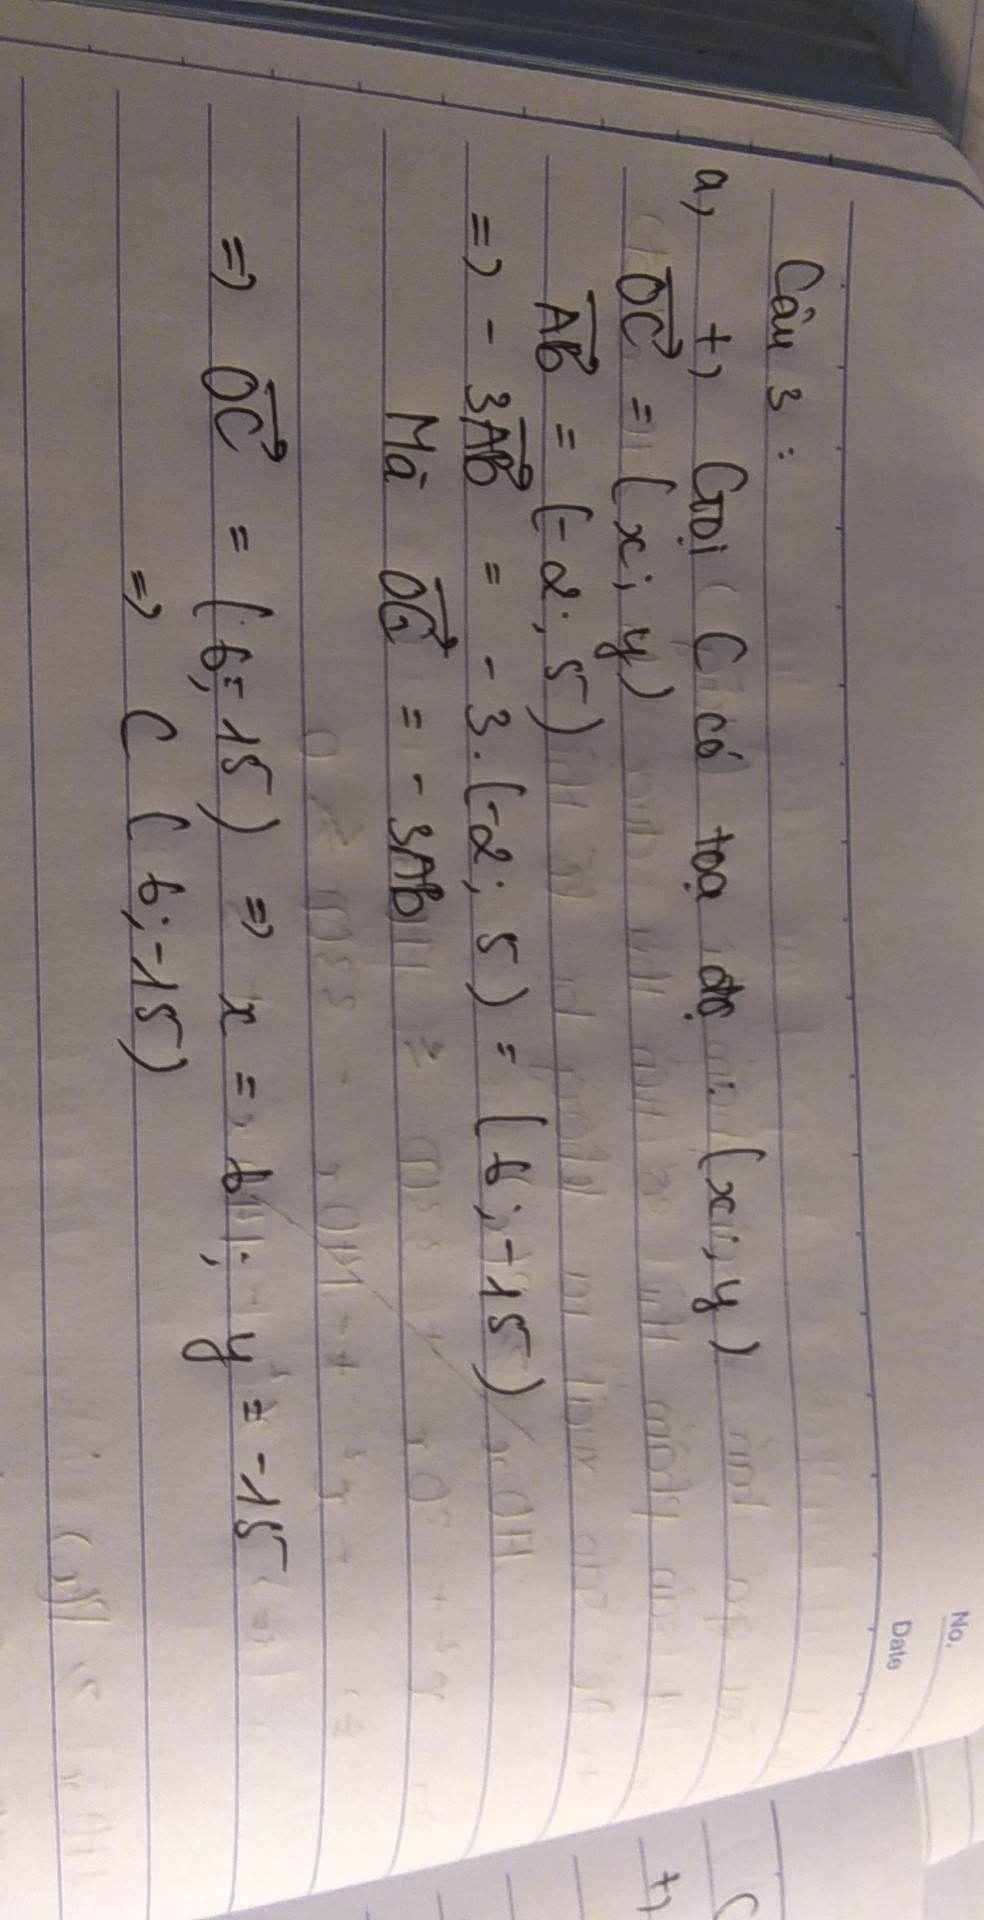 No.
Date
Câu 3 :
a, +, Gọi C có tọa độ (x; y)
OC = (x; y)
AB = (-2; 5)
=> - 3AB = - 3.(-2; 5) = (6; -15)
Mà OC = - 3AB
=> OC = (6; -15) => x = 6; y = -15
=> C (6; -15)
+,